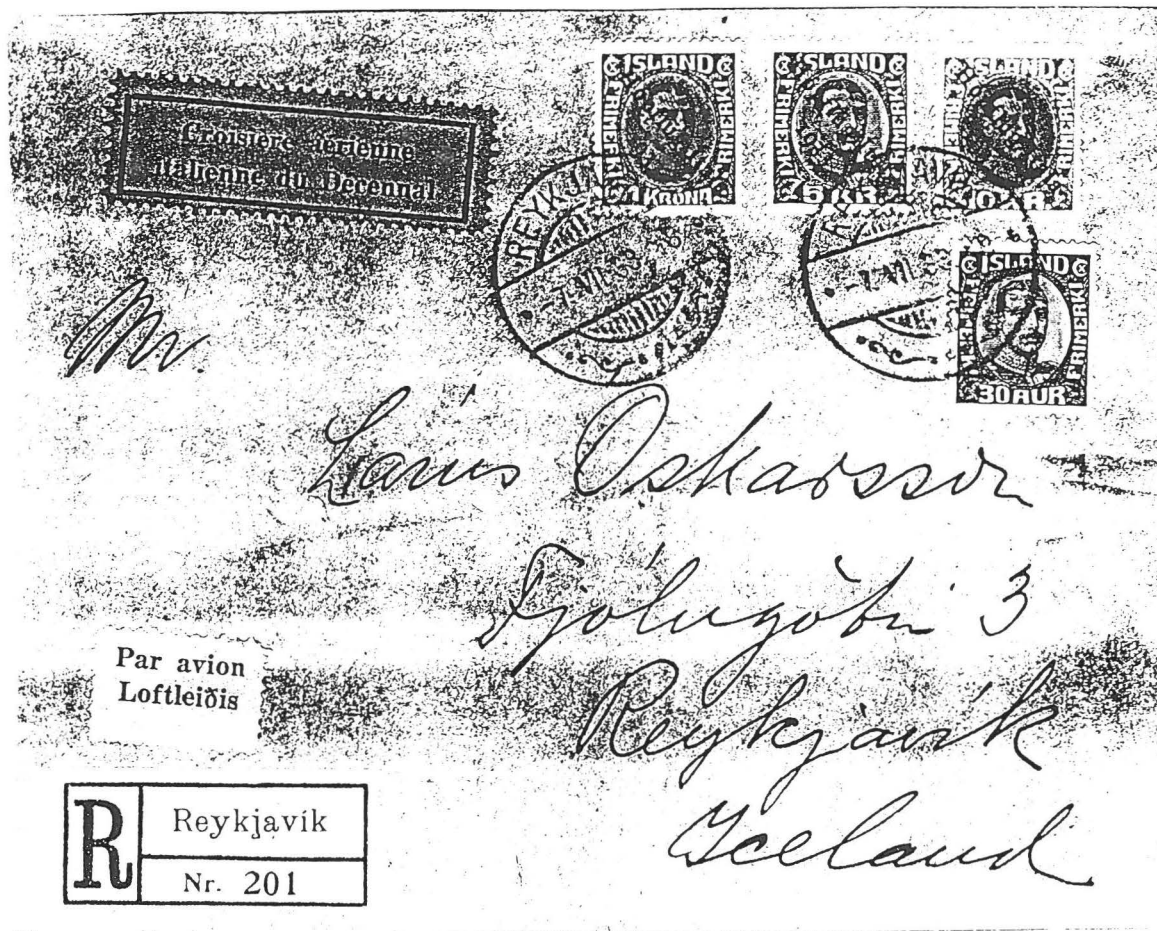 Croisière aérienne
italienne du Décennal
ÍSLAND
FRIMERKI
1 KRÓNA
ÍSLAND
FRIMERKI
5 KR.
ÍSLAND
FRIMERKI
ÍSLAND
FRIMERKI
30 AUR
REYKJA
-7.VII.33
-7.VII.33
Mr.
Larus Oskarsson
Fjólugötu 3
Reykjavík
Iceland
Par avion
Loftleiðis
R
Reykjavík
Nr. 201